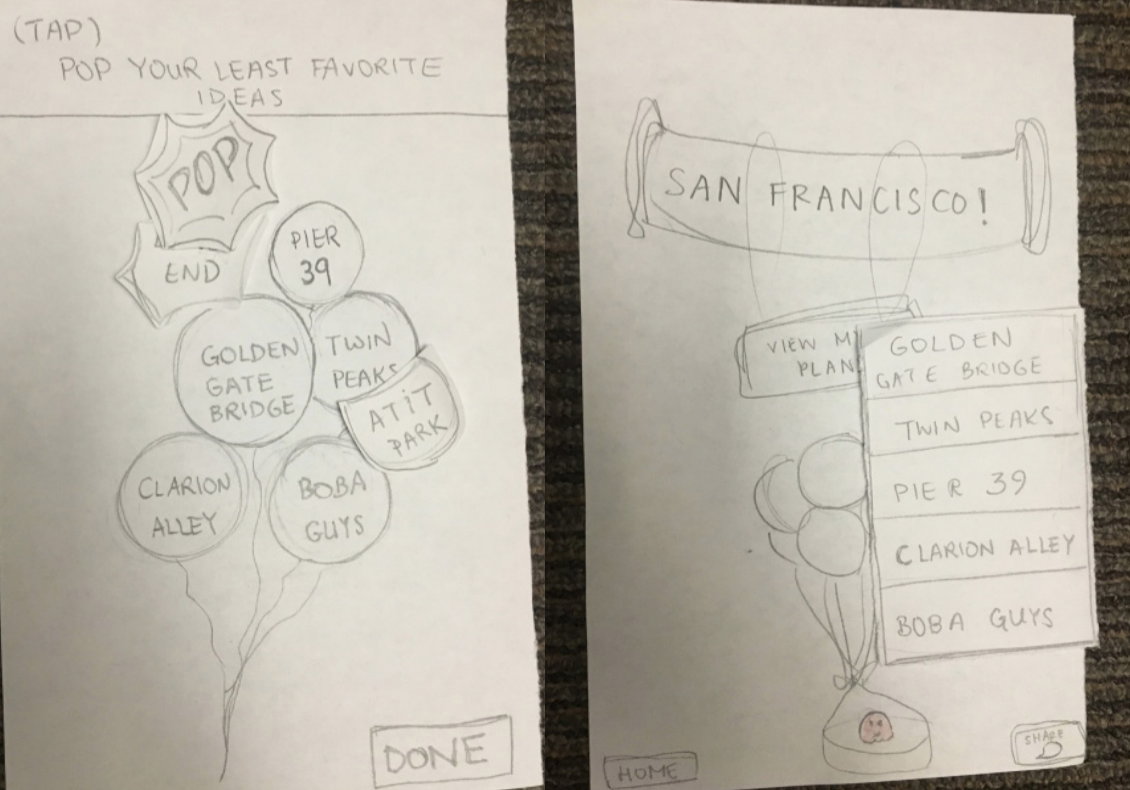 (TAP)
POP YOUR LEAST FAVORITE
IDEAS
POP
END
PIER
39
GOLDEN
GATE
BRIDGE
TWIN
PEAKS
ATIT
PARK
CLARION
ALLEY
BOBA
GUYS
DONE
SAN FRANCISCO!
VIEW M
PLAN
GOLDEN
GATE BRIDGE
TWIN PEAKS
PIER 39
CLARION ALLEY
BOBA GUYS
HOME
SHARE